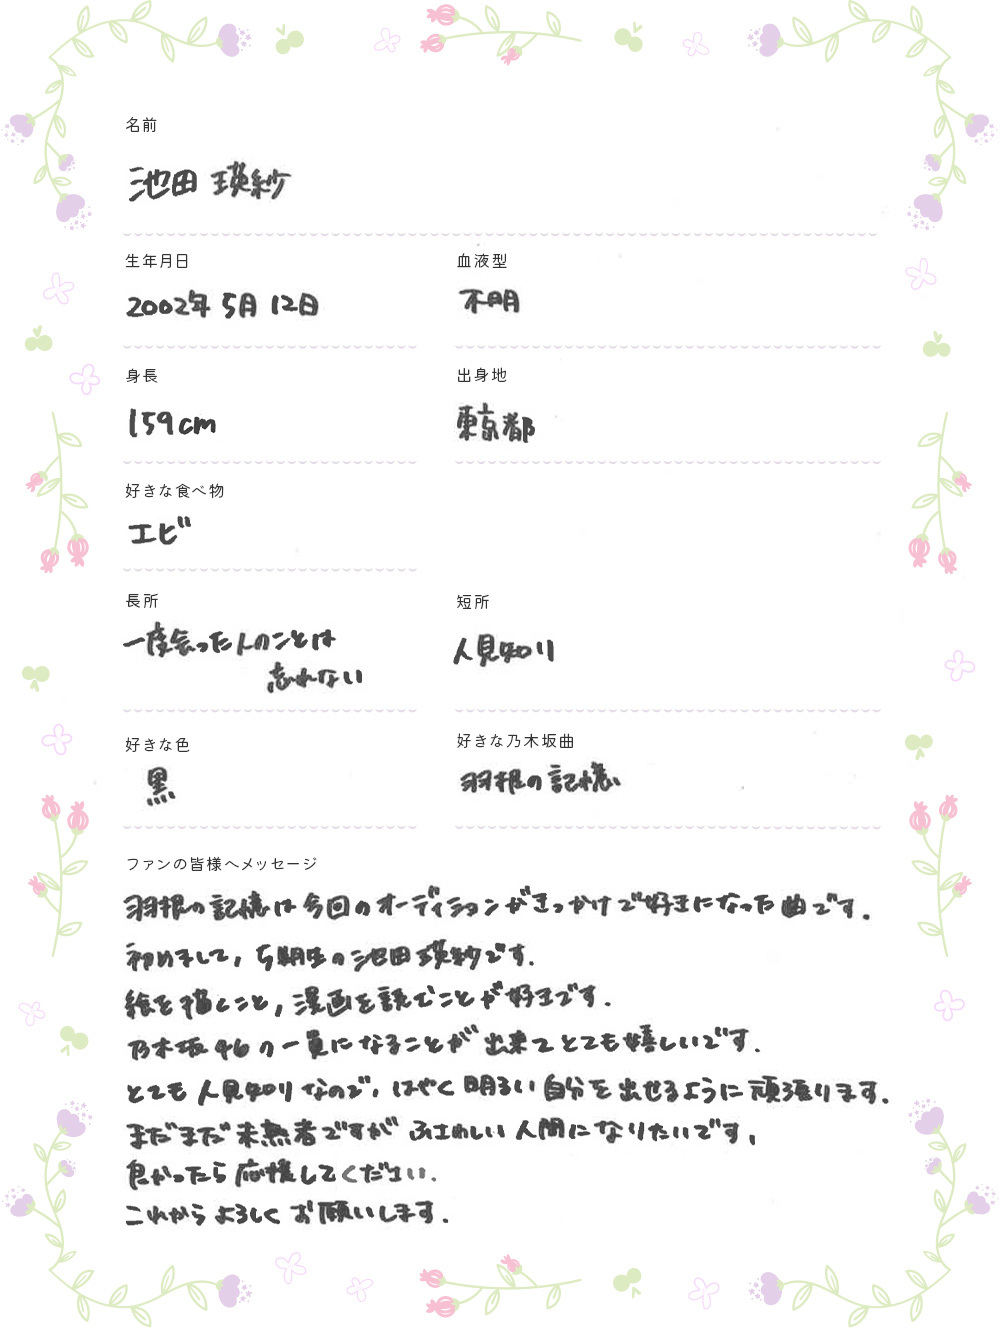 名前
池田 瑛紗
生年月日 血液型
2002年 5月 12日 不明
身長 出身地
159cm 東京都
好きな食べ物
エビ
長所 短所
一度会った人のことは 人見知り
忘れない
好きな色 好きな乃木坂曲
黒 羽根の記憶
ファンの皆様へメッセージ
羽根の記憶は今回のオーディションがきっかけで好きになった曲です。
初めまして、5期生の池田瑛紗です。
絵を描くこと、漫画を読むことが好きです。
乃木坂46の一員になることが出来てとても嬉しいです。
とても人見知りなので、はやく明るい自分を出せるように頑張ります。
まだまだ未熟者ですがふさわしい人間になりたいです。
良かったら応援してください。
これからよろしくお願いします。